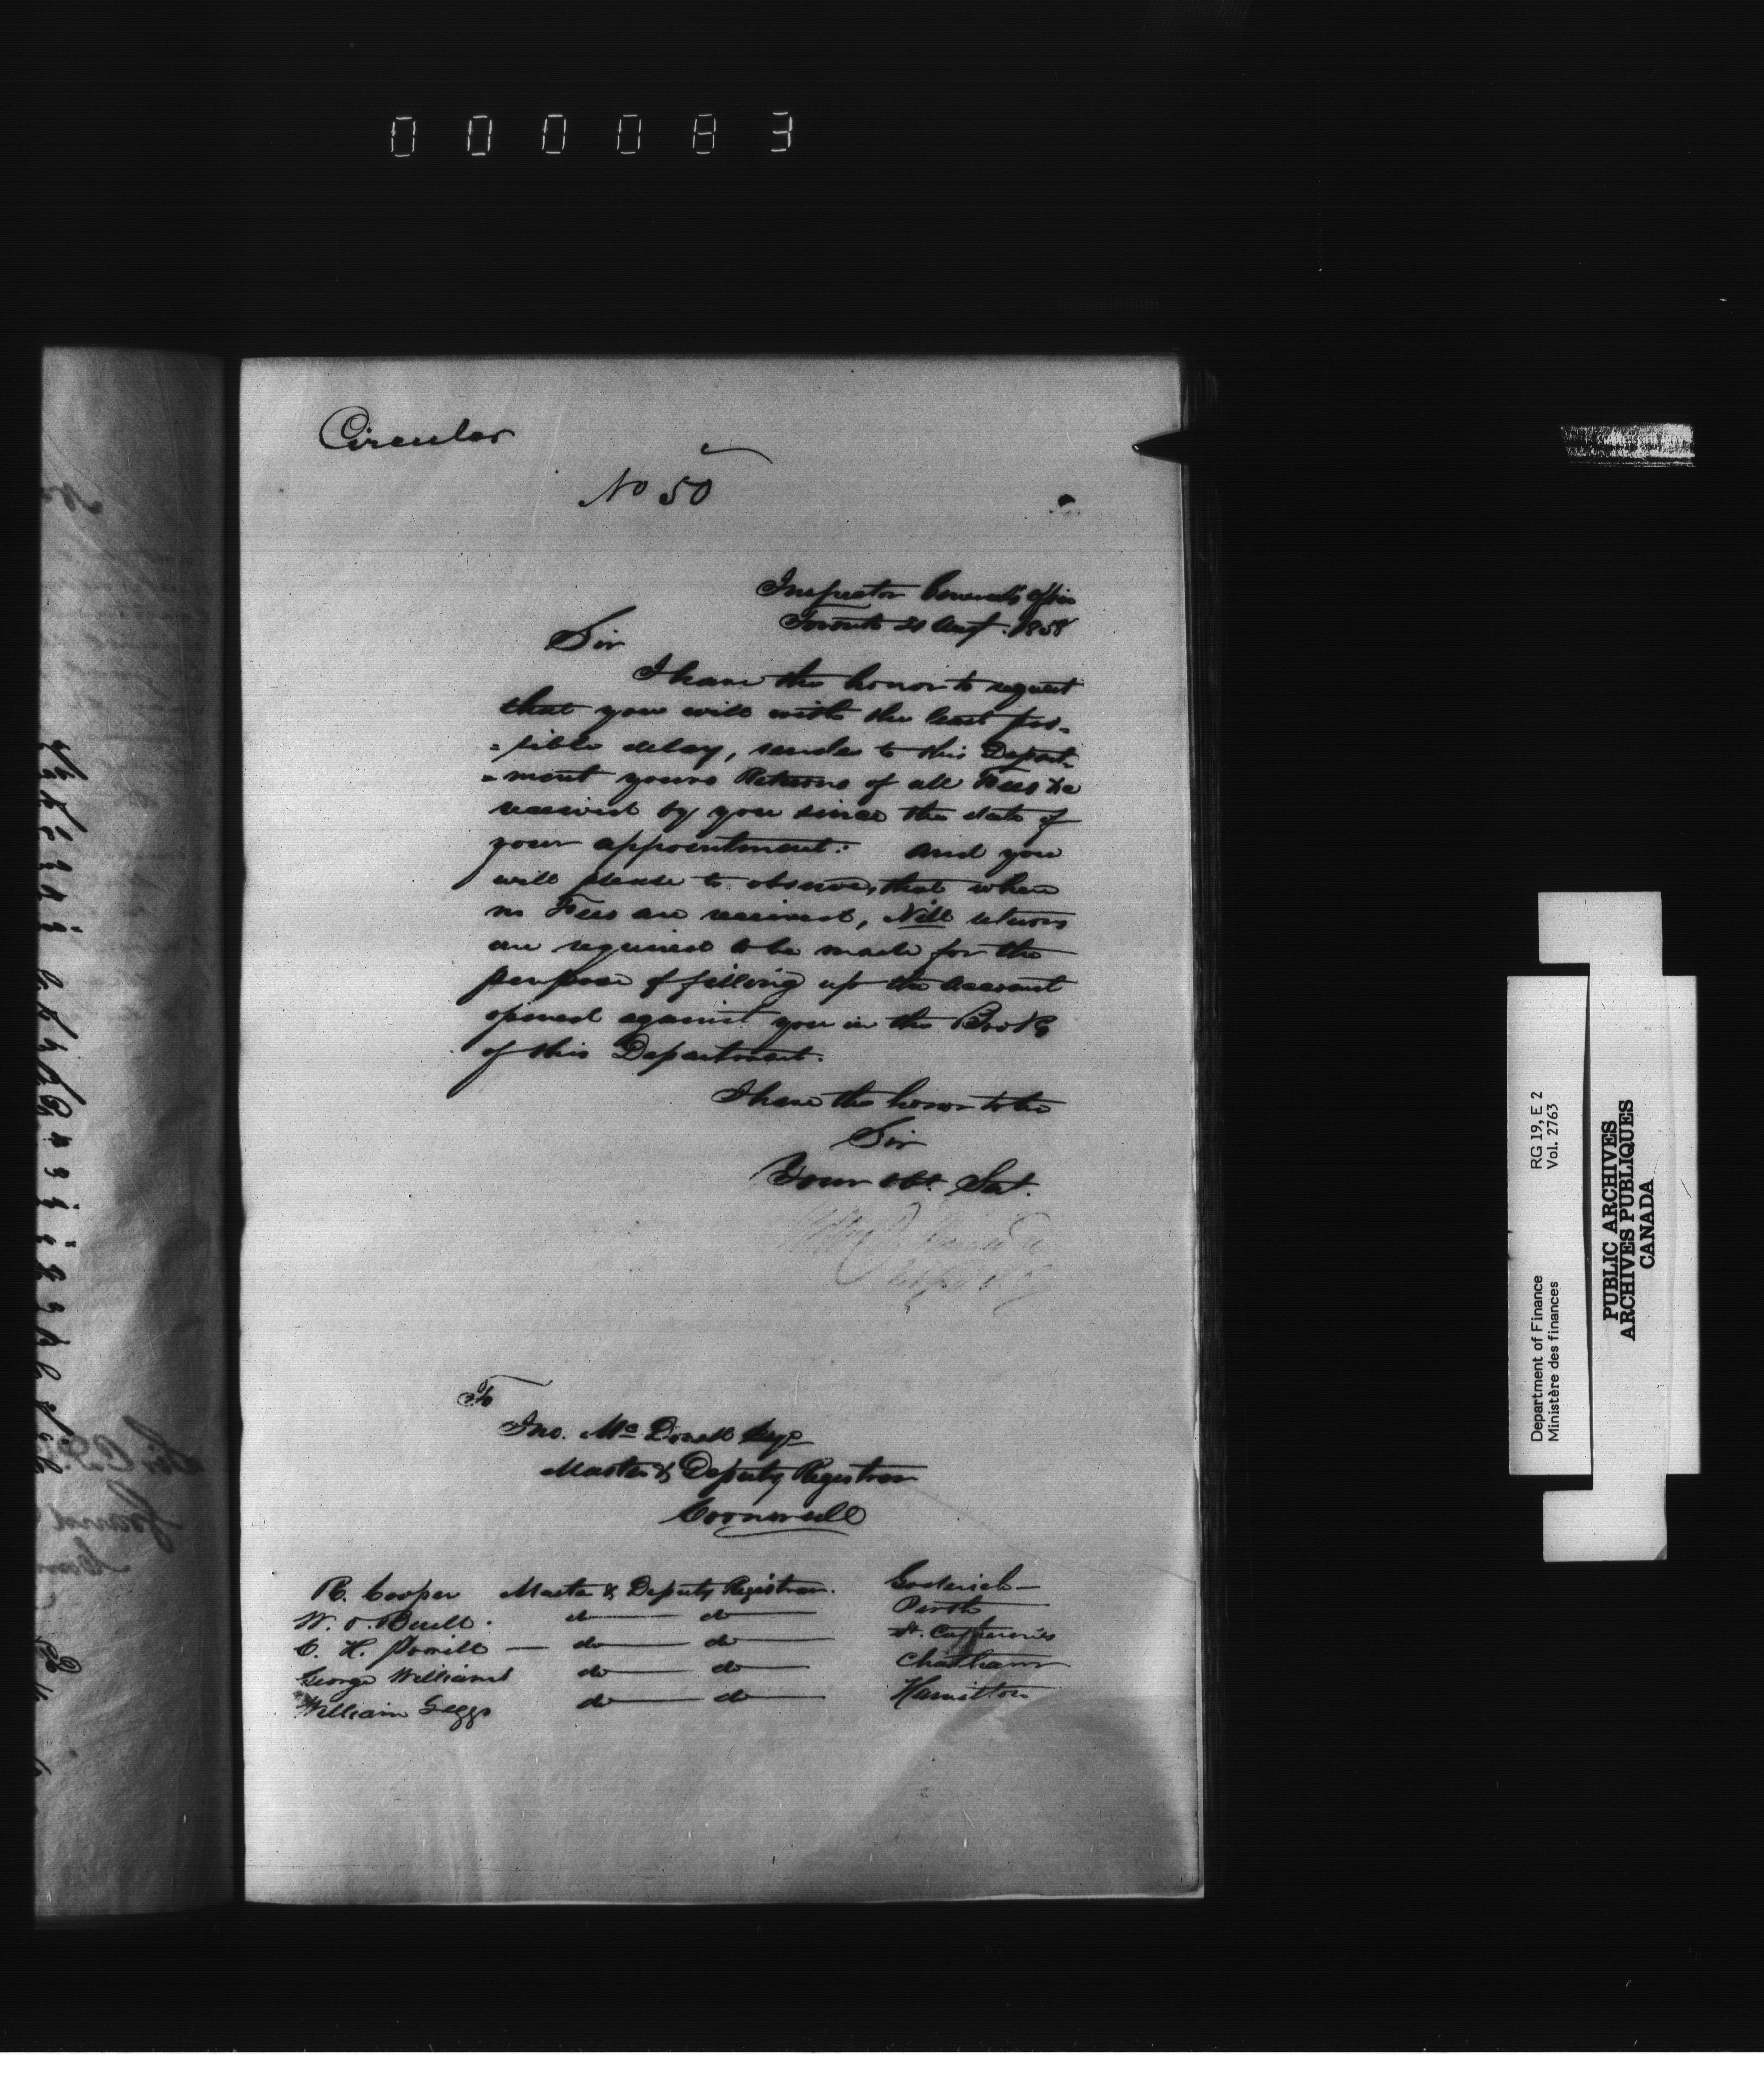 000083
Circular
No 50
Inspector General's Office
Toronto 21 Augt. 1858
Sir
I have the honor to request
that you will with the least pos-
=sible delay, send to this Depart-
=ment yours Returns of all Fees &c
received by you since the date of
your appointment: and you
will please to observe, that when
no Fees are received, Nill returns
are required to be made for the
purpose of filling up the account
opened against you in the Books
of this Department.
I have the honor to be
Sir
Your Obt. Sert.
To
Jno. Mc Donell Esqr
Master & Deputy Registrar
Cornwall
R. Cooper Master & Deputy Registrar. Goderich
W. O. Buell. do do Perth
C. H. Powell do do St. Catherines
George Williams do do Chatham
William Leggo do do Hamilton
Department of Finance RG 19, E 2
Ministère des finances Vol. 2763
PUBLIC ARCHIVES
ARCHIVES PUBLIQUES
CANADA